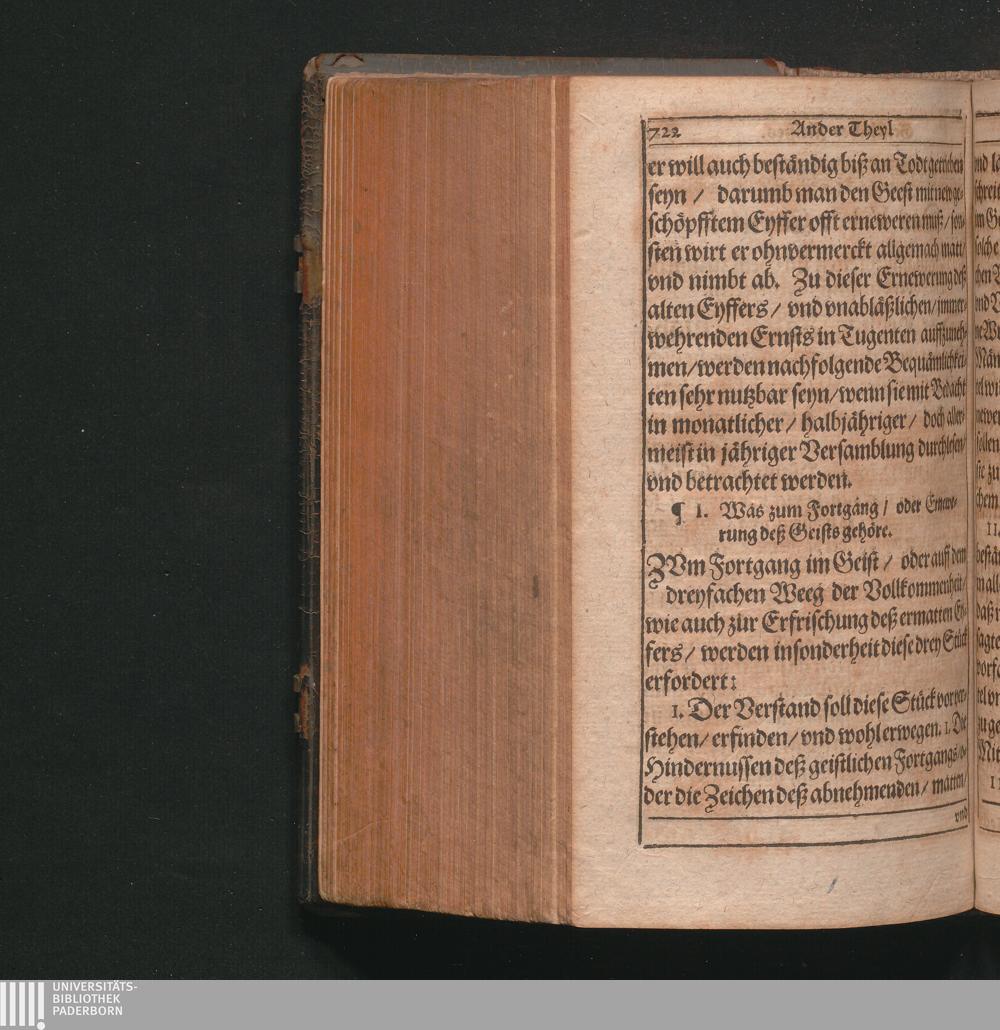 722 Ander Theyl
er will auch beständig biß an Todt getrieben
seyn / darumb man den Geest mit new ge-
schöpfftem Eyffer offt erneweren muß / son-
sten wirt er ohnvermerckt allgemach matt /
vnd nimbt ab. Zu dieser Ernewerung deß
alten Eyffers / vnd vnabläßlichen / jmmer-
wehrenden Ernsts in Tugenten auffzuneh-
men / werden nachfolgende Bequämlichkei-
ten sehr nutzbar seyn / wenn sie mit Bedacht
in monatlicher / halbjähriger / doch aller-
meist in jähriger Versamblung durchlesen /
vnd betrachtet werden.
¶ I. Was zum Fortgang / oder Ernewe-
rung deß Geists gehöre.
ZVm Fortgang im Geist / oder auff dem
dreyfachen Weeg der Vollkommenheit /
wie auch zur Erfrischung deß ermatten Ey-
fers / werden insonderheit diese drey Stück
erfordert:
1. Der Verstand soll diese Stück vor ver-
stehen / erfinden / vnd wohl erwegen. 1. Die
Hindernussen deß geistlichen Fortgangs / o-
der die Zeichen deß abnehmenden / matten /
vnd
UNIVERSITÄTS-
BIBLIOTHEK
PADERBORN